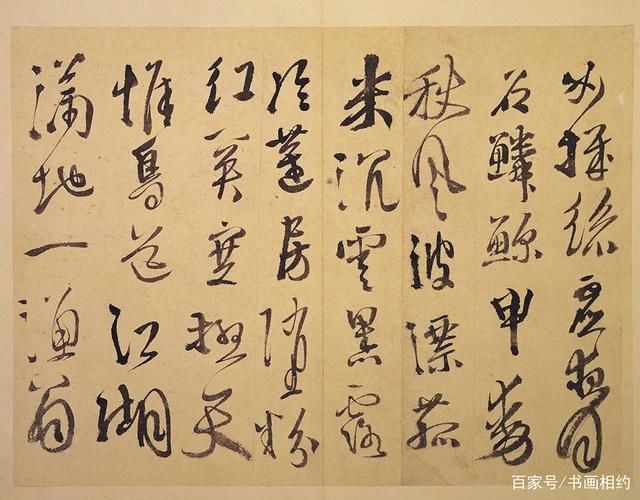 女機絲虛夜月
石鱗鯨甲動
秋風波漂菰
米沉雲黑露
冷蓮房墜粉
紅關塞極天
惟鳥道江湖
滿地一漁翁
百家号/书画相约